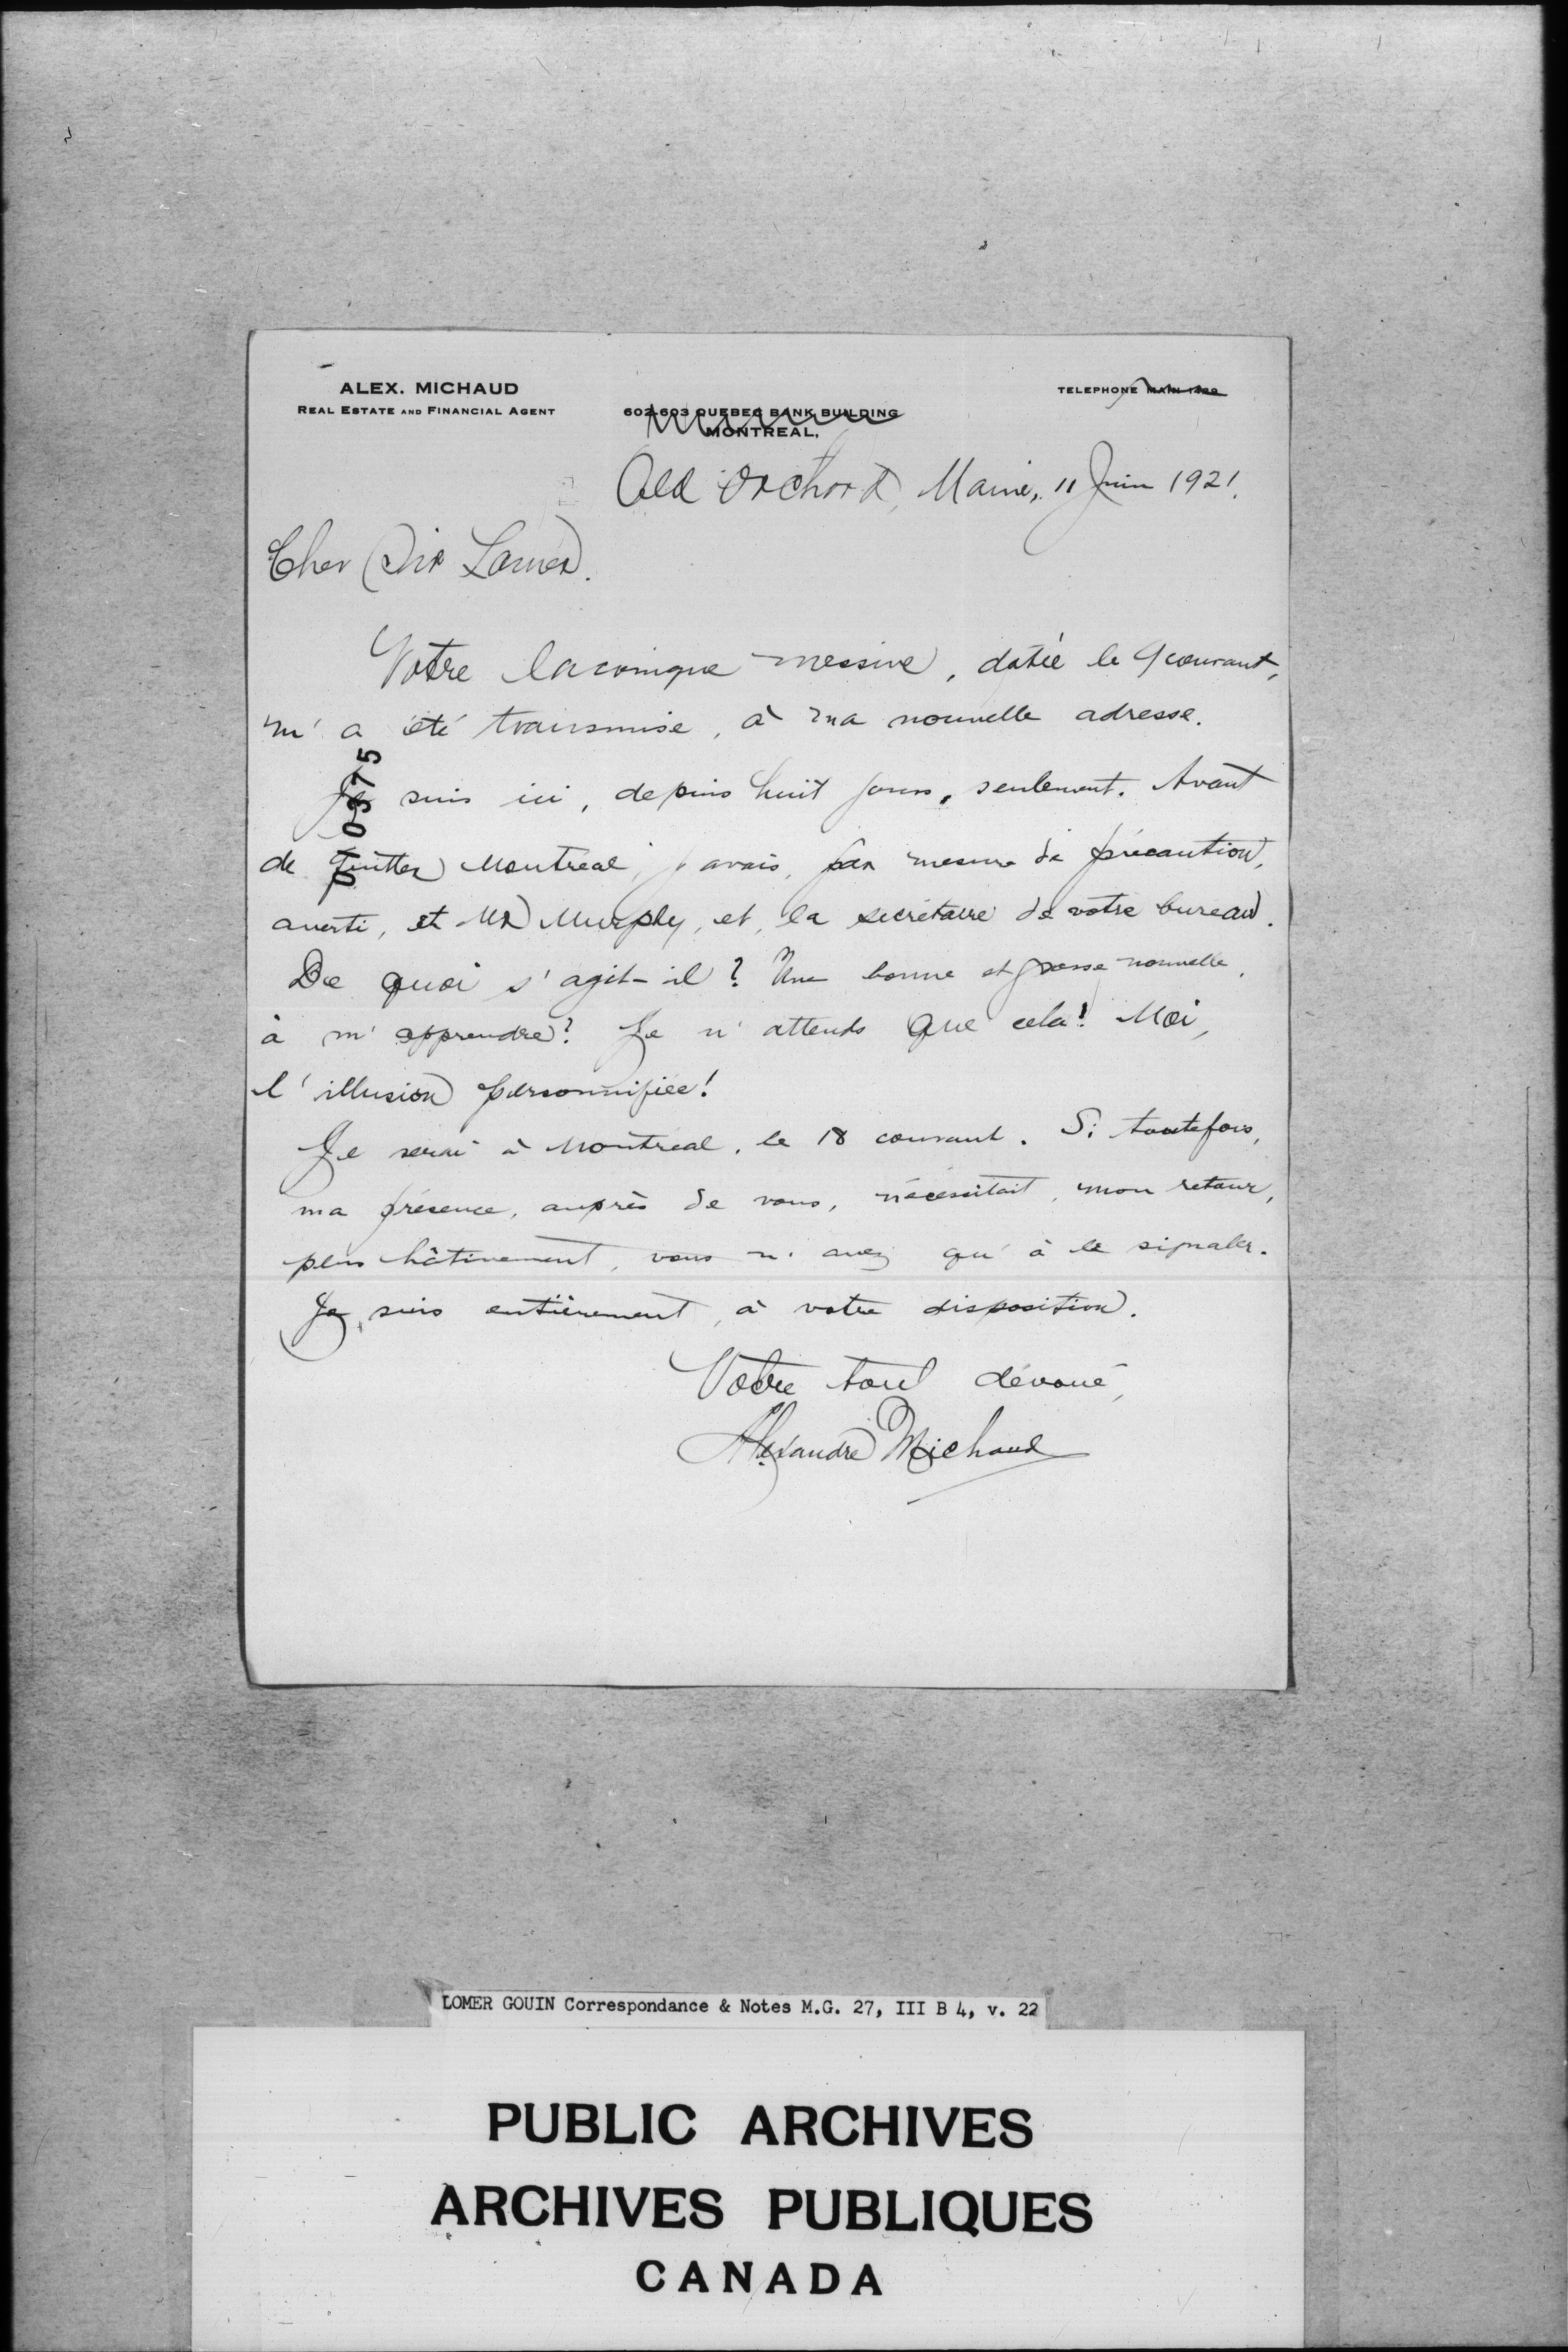 ALEX. MICHAUD
REAL ESTATE AND FINANCIAL AGENT
TELEPHONE MAIN
602-603 QUEBEC BANK BUILDING
MONTREAL,
Old Orchard, Maine, 11 Juin 1921.
Cher Sir Lomer.
Votre laconique missive, datée le 9 courant,
m'a été transmise, à ma nouvelle adresse.
Je suis ici, depuis huit jours, seulement. Avant
de quitter Montréal, j'avais, par mesure de précaution,
averti, et Mr Murphy, et, la secrétaire de votre bureau.
De quoi s'agit-il? Une bonne et grosse nouvelle,
à m'apprendre? Je n'attends que cela! Moi,
l'illusion personnifiée!
Je serai à Montréal, le 18 courant. Si toutefois,
ma présence, auprès de vous, nécessitait, mon retour,
plus hâtivement, vous n'avez qu'à le signaler.
Je suis entièrement, à votre disposition.
Votre tout dévoué,
Alexandre Michaud
LOMER GOUIN Correspondance & Notes M.G. 27, III B 4, v. 22
PUBLIC ARCHIVES
ARCHIVES PUBLIQUES
CANADA